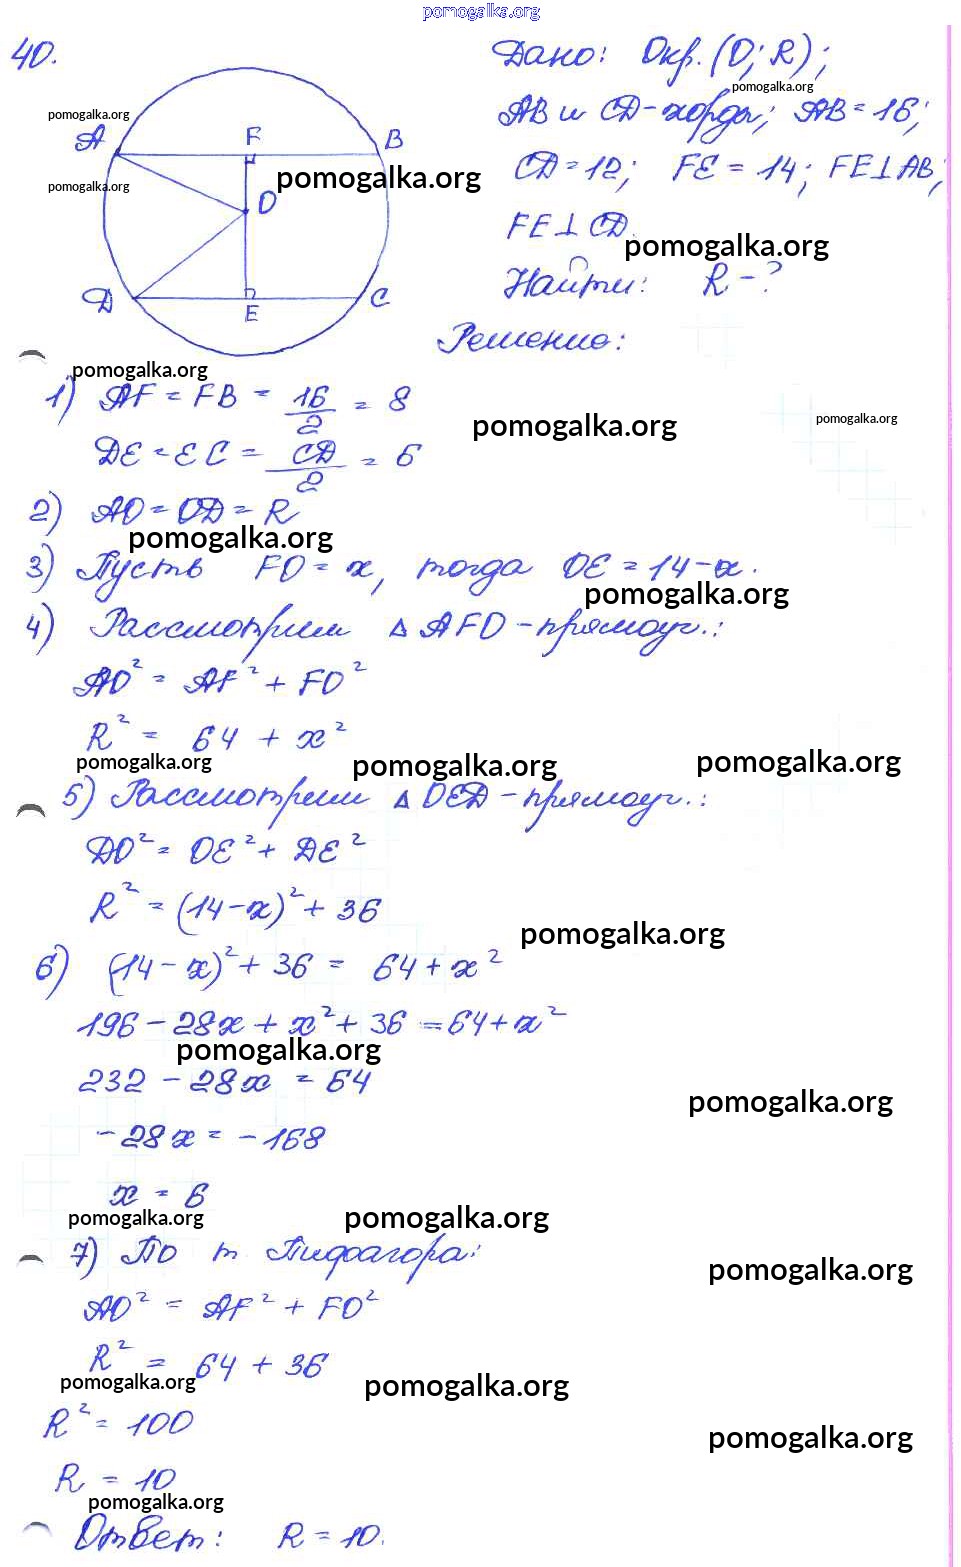 pomogalka.org
40.
Дано: Окр. (O; R);
pomogalka.org
pomogalka.org
AB и CD - хорды; AB = 16;
A F B
pomogalka.org
CD = 12; FE = 14; FE ⊥ AB;
pomogalka.org
O
FE ⊥ CD.
pomogalka.org
Найти: R - ?
D E C
Решение:
pomogalka.org
1) AF = FB = 16/2 = 8
pomogalka.org
pomogalka.org
DE = EC = CD/2 = 6
2) AO = OD = R
pomogalka.org
3) Пусть FO = x, тогда OE = 14 - x.
pomogalka.org
4) Рассмотрим Δ AFO - прямоуг.:
AO² = AF² + FO²
R² = 64 + x²
pomogalka.org
pomogalka.org
pomogalka.org
5) Рассмотрим Δ OED - прямоуг.:
DO² = OE² + DE²
R² = (14 - x)² + 36
pomogalka.org
6) (14 - x)² + 36 = 64 + x²
196 - 28x + x² + 36 = 64 + x²
pomogalka.org
232 - 28x = 64
pomogalka.org
- 28x = - 168
x = 6
pomogalka.org
pomogalka.org
7) По т. Пифагора:
pomogalka.org
AO² = AF² + FO²
R² = 64 + 36
pomogalka.org
pomogalka.org
R² = 100
pomogalka.org
R = 10
pomogalka.org
Ответ: R = 10.